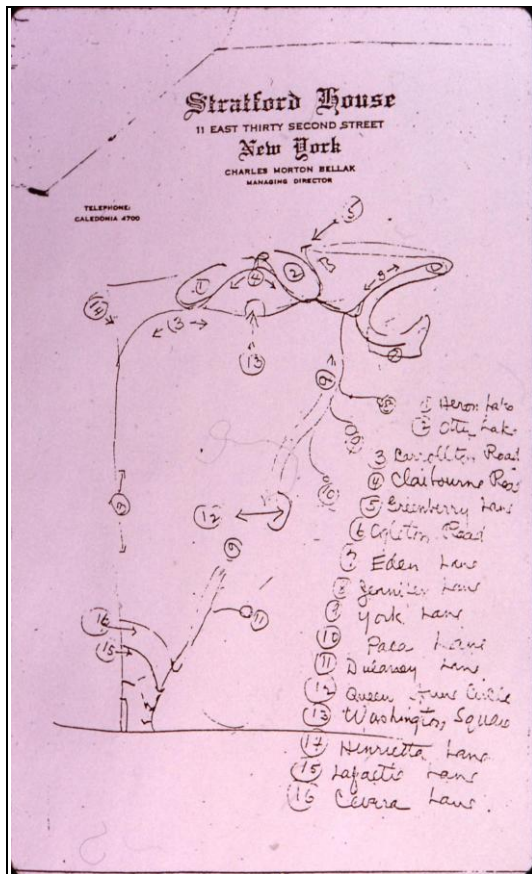 Stratford House
11 EAST THIRTY SECOND STREET
New York
CHARLES MORTON BELLAK
MANAGING DIRECTOR
TELEPHONE:
CALEDONIA 4700
5
1
4
2
8
14
3
13
9
10
12
9
11
16
15
1 Heron Lake
2 Otter Lake
3 Carrollton Road
4 Claibourne Road
5 Greenberry Lane
6 Ogleton Road
7 Eden Lane
8 Jennifer Lane
9 York Lane
10 Paca Lane
11 Dulaney Lane
12 Queen Anne Circle
13 Washington Square
Henrietta Lane
15 Lafaette Lane
16 Lane